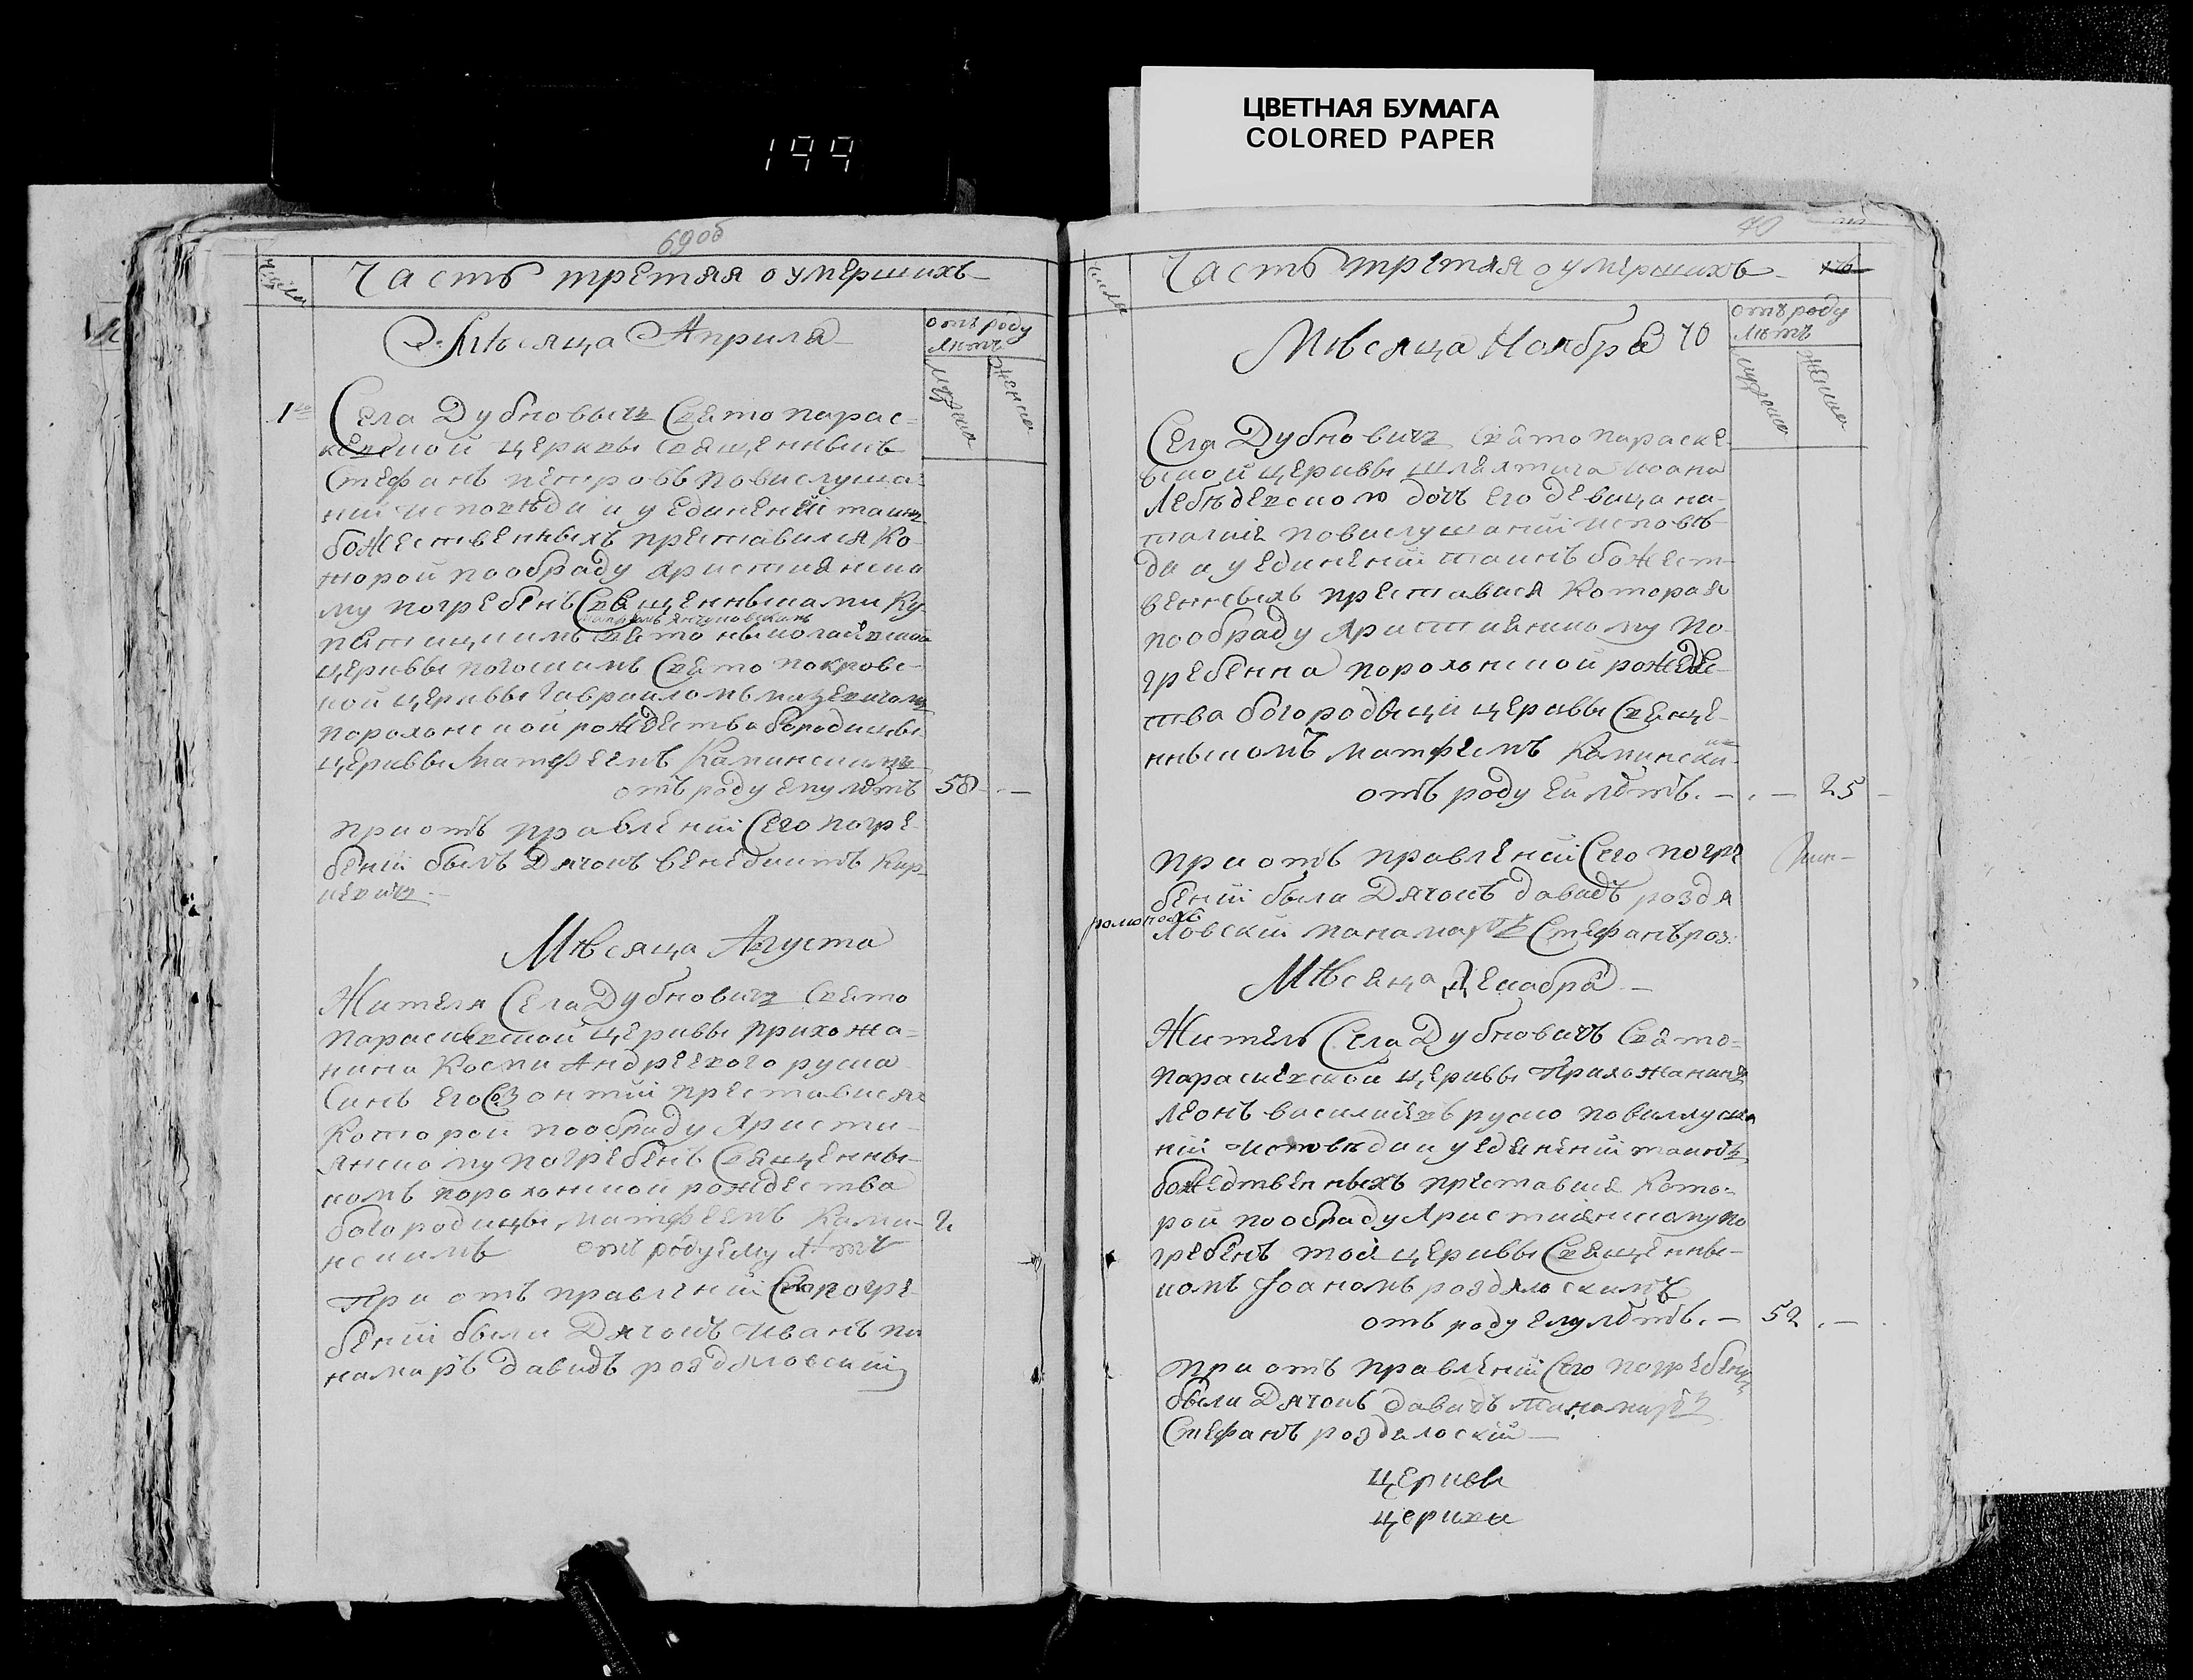 199
ЦВЕТНАЯ БУМАГА
COLORED PAPER
69об
Число
Часть третяя о умершихъ
Мѣсяца Априля
отъ роду
лѣтъ
мужска
женска
1го
Села Дубновычъ Свято парас-
кевской церквы Священныкъ
Стефанъ Петровъ по вислуша-
нии исповѣди и уединений таинъ
божественныхъ преставился Ко-
торой по обраду християнско
му погребенъ Священныками Ку-
пятицкимъ свято николаевской
церквы Свято покровс-
кой церквы Гавриломъ
порохонской рождества богородицы
церквы Матфеемъ Каминскимъ
отъ роду ему лѣтъ 58
при отъ правлений Сего погре-
бений былъ Дячокъ Венедиктъ Кир
Мѣсяца Августа
Жителя Села Дубновичъ Свято
параскевской церквы прихожа-
нина Андреевого руска
Синъ его Созонтий преставися
Которой по обраду Христи-
янскому погребенъ Священны-
комъ порохонской рождества
богородицы Матфеемъ Ками- 2
нскимъ отъ роду ему лѣтъ
При отъ правлений Сего погре-
бений были Дячокъ Иванъ по
намаръ давидъ роздяловский
70
Число
Часть третяя о умершихъ
Мѣсяца Ноября 70
отъ роду
лѣтъ
мужска
женска
Села Дубновичъ Свято параске-
вской церквы шляхтича Иоана
дочъ его девица на-
талие по вислушаний исповѣ-
ди и уединений таинъ божест-
венныхъ преставися Которая
по обраду Християнскому по-
гребенна порохонской рождес-
тва богородыци церквы Свяще-
нныкомъ Матфеемъ Камински-
отъ роду ей лѣтъ. 25
при отъ правлений Сего погре
бений были Дячокъ давидъ роздя
ловский панамаръ Стефанъ роз:
Мѣсяца Декабра
Житель Села Дубновичъ Свято-
параскевской церквы Прихожанинъ
Леонъ василиевъ руско по вислуша
ний исповѣди и уединений таинъ
божественныхъ преставися Кото-
рой по обраду Християнскому по
гребенъ тоей церквы Священны-
комъ Иоаномъ роздялоскимъ
отъ роду ему лѣтъ. 52
при отъ правлений Сего погребений
были Дячокъ давидъ панамаръ
Стефанъ роздялоский
церквы
церкви